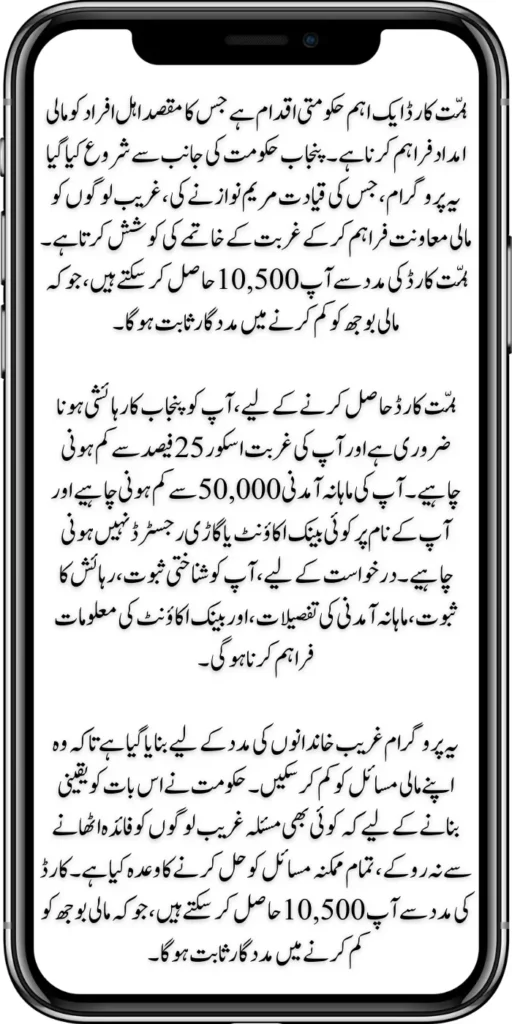 ہمّت کارڈ ایک اہم حکومتی اقدام ہے جس کا مقصد اہل افراد کو مالی
امداد فراہم کرنا ہے۔ پنجاب حکومت کی جانب سے شروع کیا گیا
یہ پروگرام، جس کی قیادت مریم نواز نے کی، غریب لوگوں کو
مالی معاونت فراہم کر کے غربت کے خاتمے کی کوشش کرتا ہے۔
ہمّت کارڈ کی مدد سے آپ 10,500 حاصل کر سکتے ہیں، جو کہ
مالی بوجھ کو کم کرنے میں مددگار ثابت ہوگا۔
ہمّت کارڈ حاصل کرنے کے لیے، آپ کو پنجاب کا رہائشی ہونا
ضروری ہے اور آپ کی غربت اسکور 25 فیصد سے کم ہونی
چاہیے۔ آپ کی ماہانہ آمدنی 50,000 سے کم ہونی چاہیے اور
آپ کے نام پر کوئی بینک اکاؤنٹ یا گاڑی رجسٹرڈ نہیں ہونی
چاہیے۔ درخواست کے لیے، آپ کو شناختی ثبوت، رہائش کا
ثبوت، ماہانہ آمدنی کی تفصیلات، اور بینک اکاؤنٹ کی معلومات
فراہم کرنا ہوگی۔
یہ پروگرام غریب خاندانوں کی مدد کے لیے بنایا گیا ہے تاکہ وہ
اپنے مالی مسائل کو کم کر سکیں۔ حکومت نے اس بات کو یقینی
بنانے کے لیے کہ کوئی بھی مسئلہ غریب لوگوں کو فائدہ اٹھانے
سے نہ روکے، تمام ممکنہ مسائل کو حل کرنے کا وعدہ کیا ہے۔ کارڈ
کی مدد سے آپ 10,500 حاصل کر سکتے ہیں، جو کہ مالی بوجھ کو
کم کرنے میں مددگار ثابت ہوگا۔